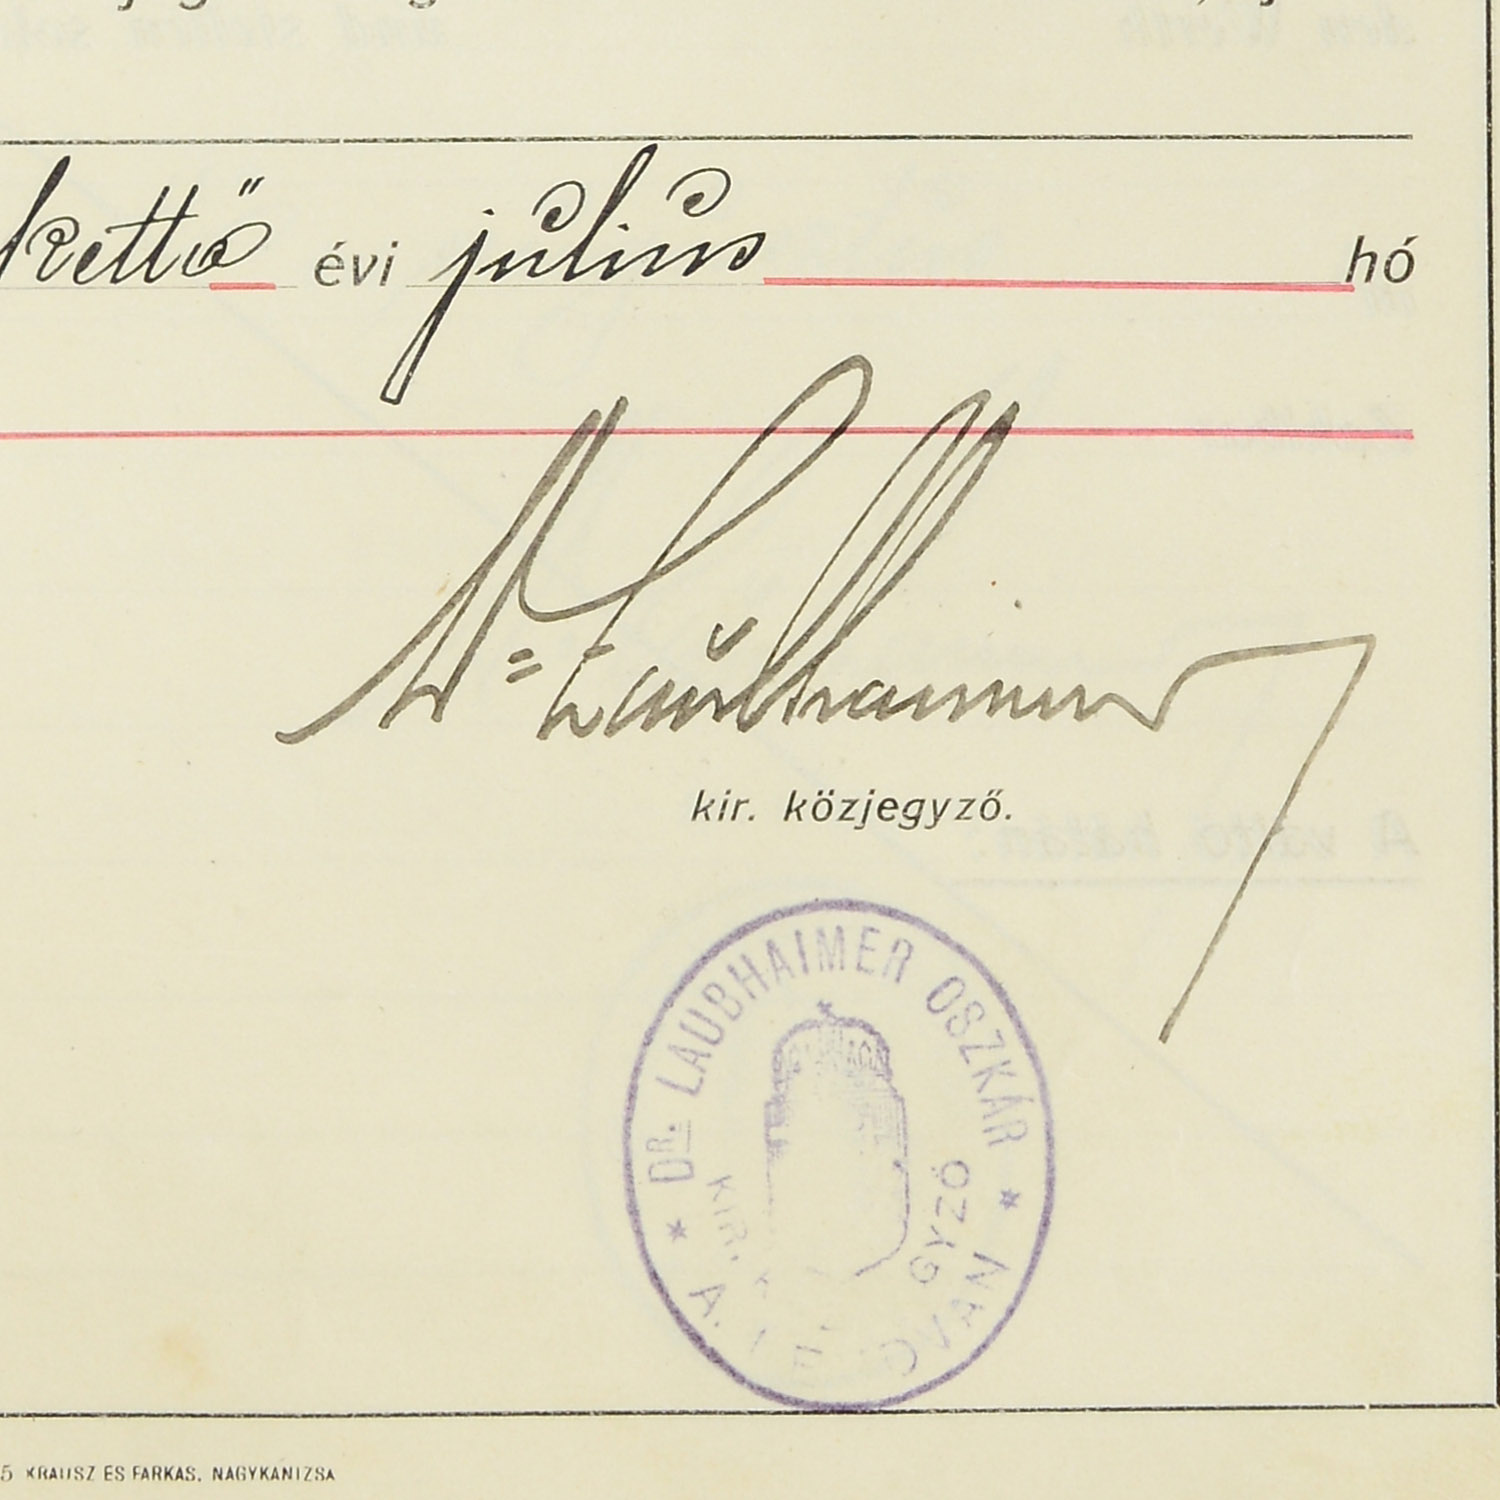 kettő évi július hó
Dr= Laubhaimer
kir. közjegyző.
* DR. LAUBHAIMER OSZKÁR *
KIR. GYZŐ
5 KRAUSZ ÉS FARKAS, NAGYKANIZSA